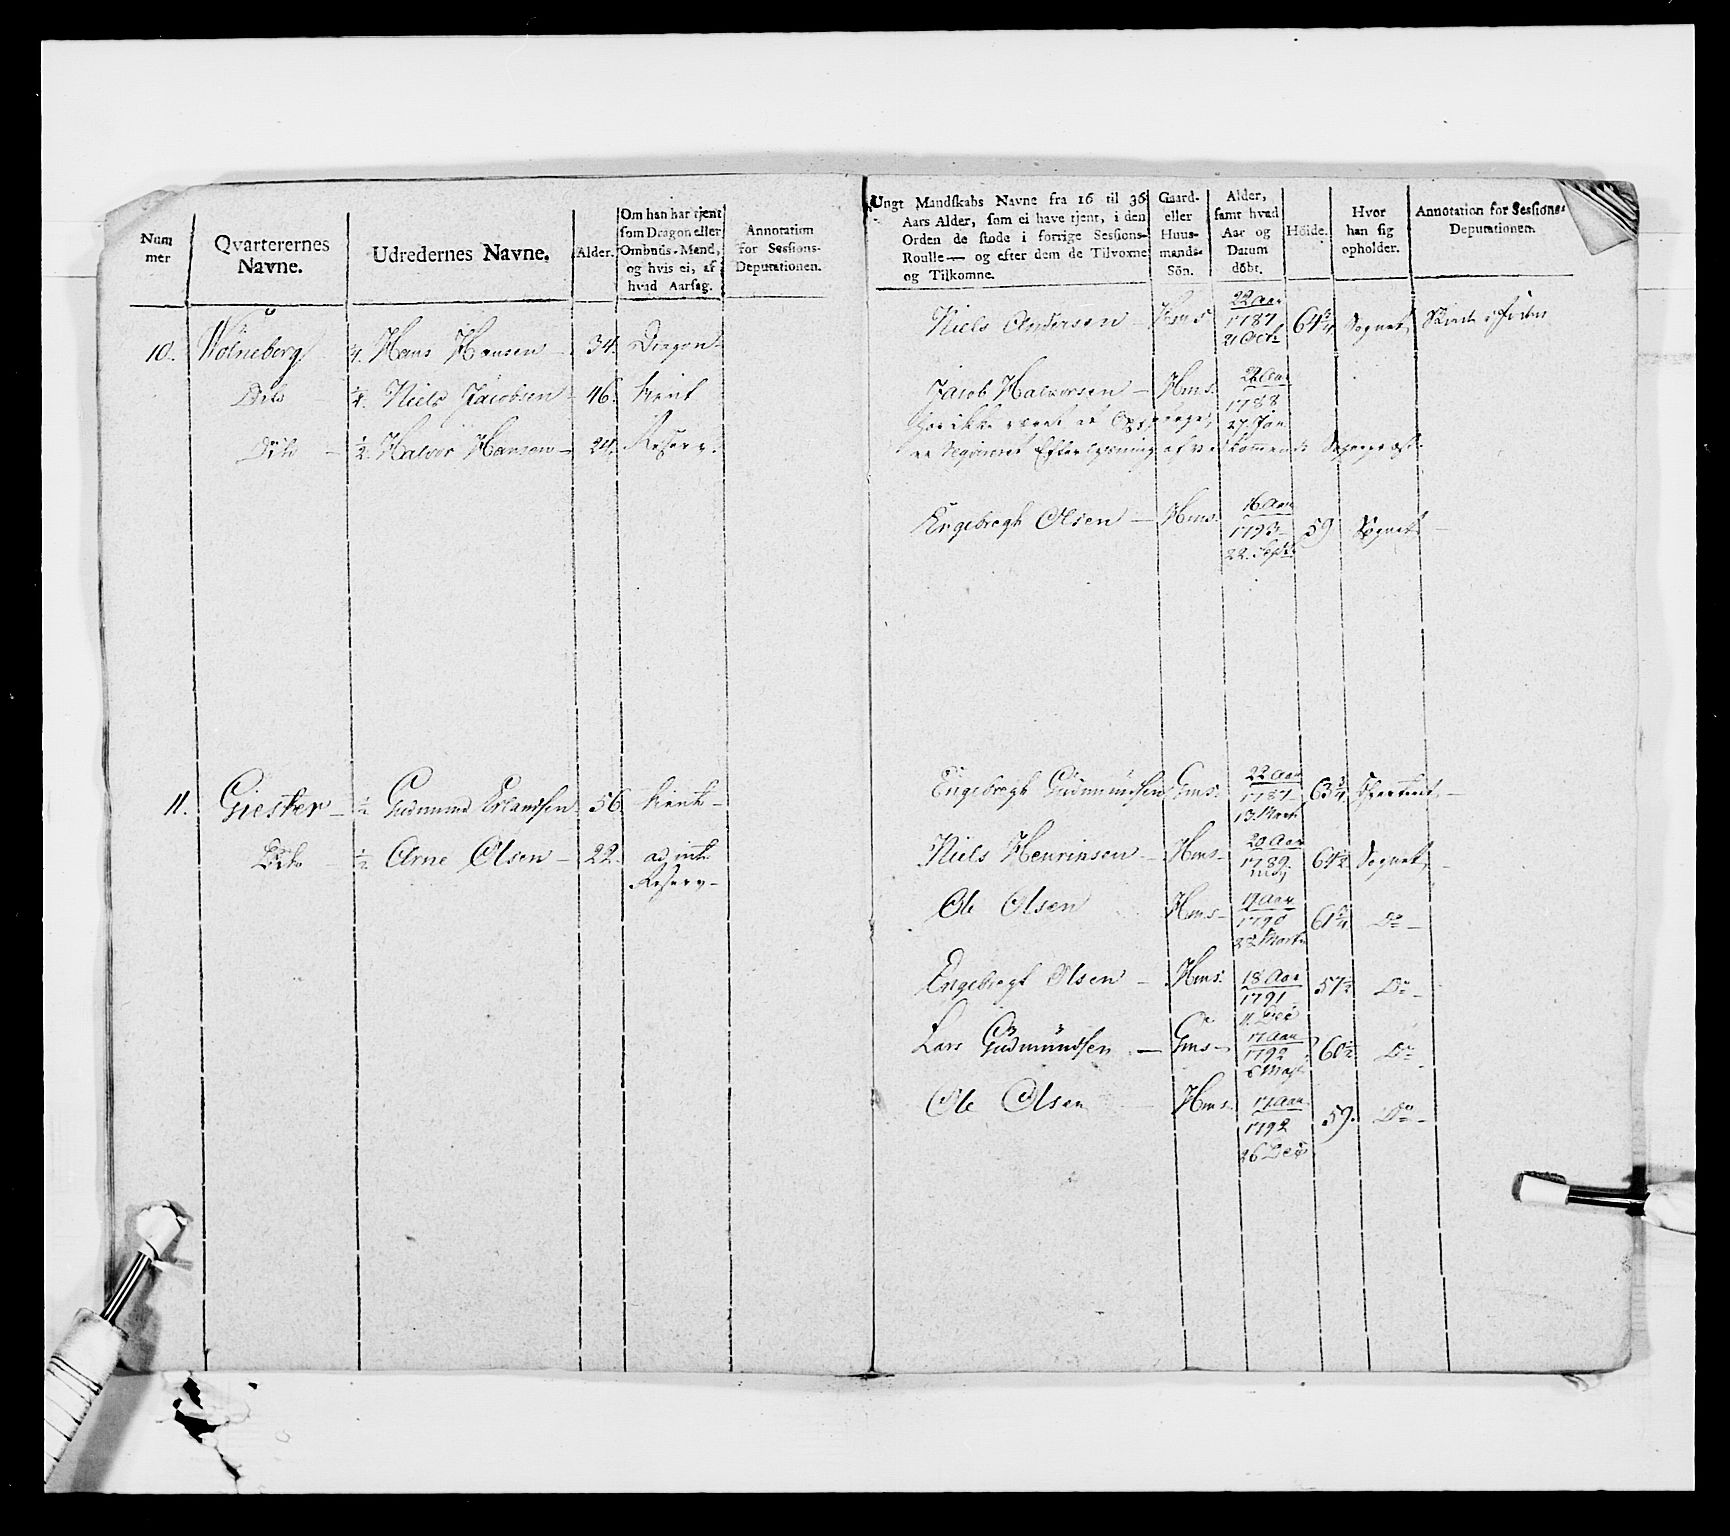 Num
mer
Qvarterernes
Navne.
Udredernes Navne.
Alder.
Om han har tjent
som Dragon eller
Ombuds-Mand,
og hvis ei, af
hvad Aarsag.
Annotation
for Sessions-
Deputationen.
10.
Hans Hansen 34. Dragon
Dito Niels Jacobsen 46. tient
Dito 1/2 Halvor Hansen 24. Reserv.
11. Giester 1/2 Gudmund Erlandsen 56. tient
Dito 1/2 Arne Olsen 22.
Reserv
Ungt Mandskabs Navne fra 16 til 36
Aars Alder, som ei have tjent, i den
Orden de stode i forrige Sessions-
Roulle— og efter dem de Tilvoxne
og Tilkomne.
Gaard-
eller
Huus-
mands-
Sön.
Alder,
samt hvad
Aar og
Datum
döbt.
Höide.
Hvor
han sig
opholder.
Annotation for Sessions-
Deputationen.
Niels Andersen Hms 22 Aar
1787
21 Octb 64 3/4 Sognet
Jacob Halvorsen Hms.
1788
27 Jan
Har ikke været
Engebregt Olsen Hms. 16 Aar
1793
22. Septb 59 Sognet
Engebregt Gudmundsen Gms 22 Aar
1787
13 Martz 63 3/4
Niels Henrinsen Hms 20 Aar
1789 64 1/2 Sognet
Ole Olsen Hms 19 Aar
1790
Martz Do
Engebregt Olsen Hms. 18 Aar
1791
11. Dec 57 1/2 Do
Lars Gudmundsen Gms 17 Aar
1792
60 1/2 Do
Ole Olsen Hms 17 Aar
1792
26 Dec 59. Do